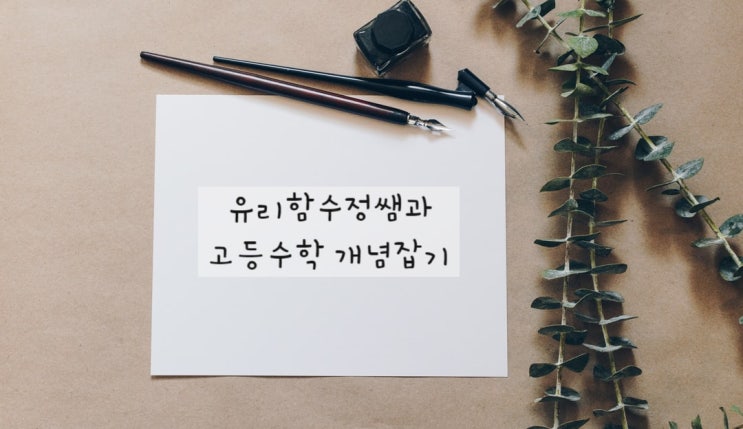 유리함수정쌤과
고등수학 개념잡기